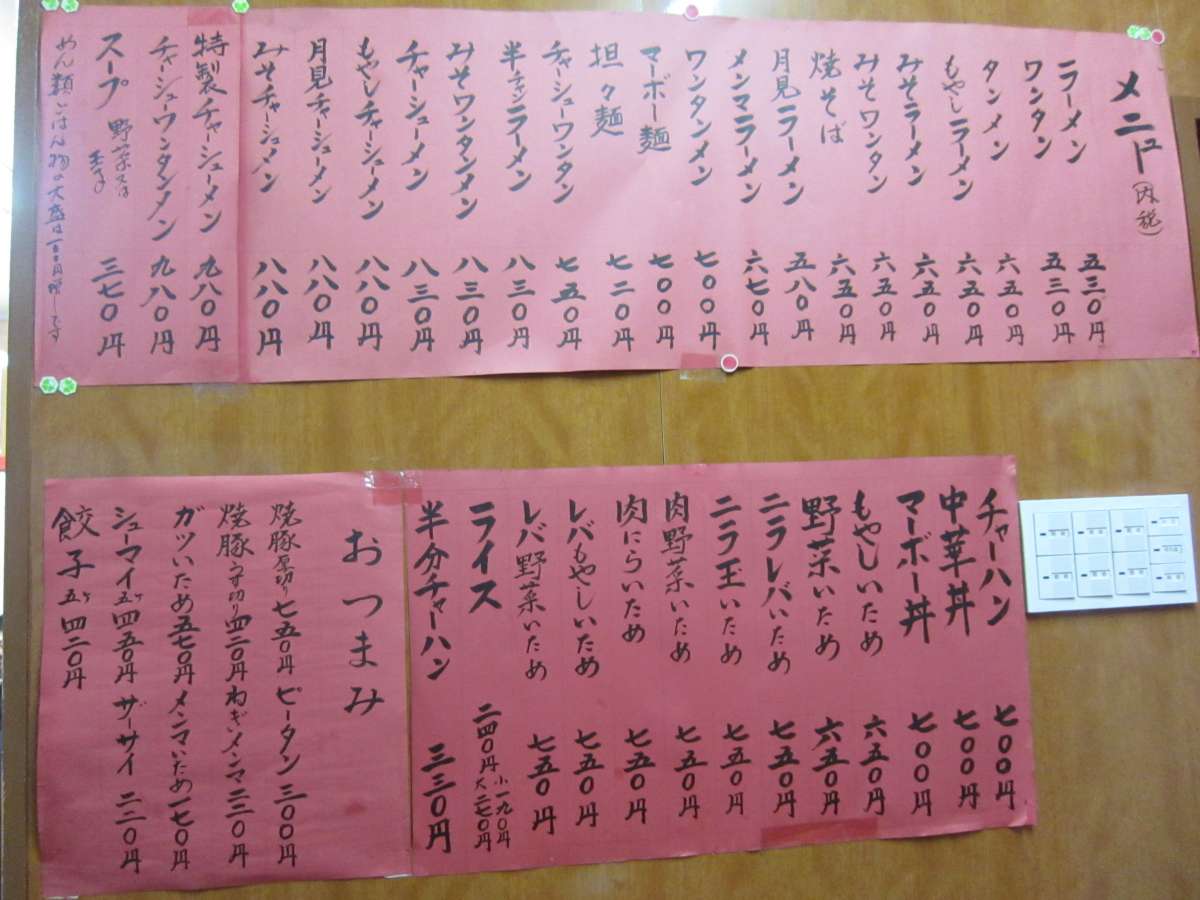 メニュー(内税)
ラーメン 五三〇円
ワンタン 五三〇円
タンメン 六五〇円
もやしラーメン 六五〇円
みそラーメン 六五〇円
みそワンタン 六五〇円
焼そば 六五〇円
月見ラーメン 五八〇円
メンマラーメン 六七〇円
ワンタンメン 七〇〇円
マーボー麺 七〇〇円
担々麺 七二〇円
チャーシューワンタン 七五〇円
半チャンラーメン 八三〇円
みそワンタンメン 八三〇円
チャーシューメン 八三〇円
もやしチャーシューメン 八八〇円
月見チャーシューメン 八八〇円
みそチャーシューメン 八八〇円
特製チャーシューメン 九八〇円
チャーシューワンタンメン 九八〇円
スープ 野菜又は玉子 三七〇円
めん類ごはん物の大盛は一〇〇円増しです
チャーハン 七〇〇円
中華丼 七〇〇円
マーボー丼 七〇〇円
もやしいため 六五〇円
野菜いため 六五〇円
ニラレバいため 七五〇円
ニラ玉いため 七五〇円
肉野菜いため 七五〇円
肉にらいため 七五〇円
レバもやしいため 七五〇円
レバ野菜いため 七五〇円
ライス 二四〇円 小一九〇円 大二七〇円
半分チャーハン 三三〇円
おつまみ
焼豚厚切り 七五〇円 ピータン 三〇〇円
焼豚うす切り 四二〇円 ねぎメンマ 二三〇円
ガツいため 五七〇円 メンマいため 一七〇円
シューマイ五ケ 四五〇円 ザーサイ 二二〇円
餃子 五ケ 四二〇円